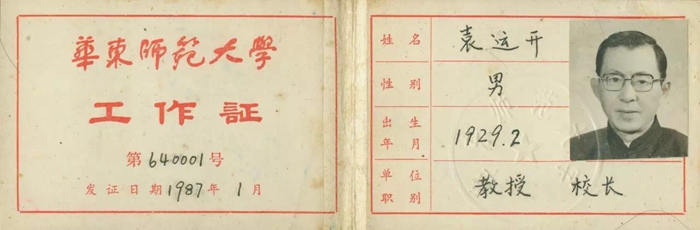 華東师范大学
工作証
第640001号
发证日期1987年1月
姓名 袁运开
性别 男
出生年月 1929.2
单位职别 教授 校长